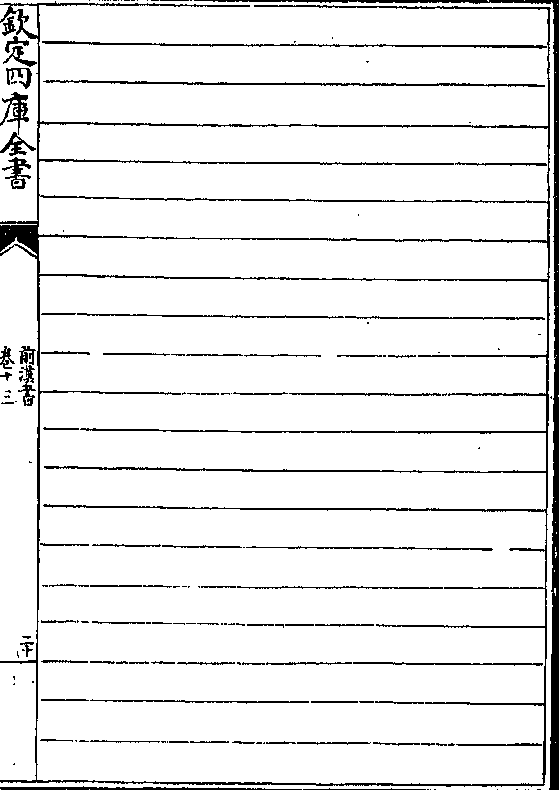 欽定四庫全書
前漢書
卷十三
二十